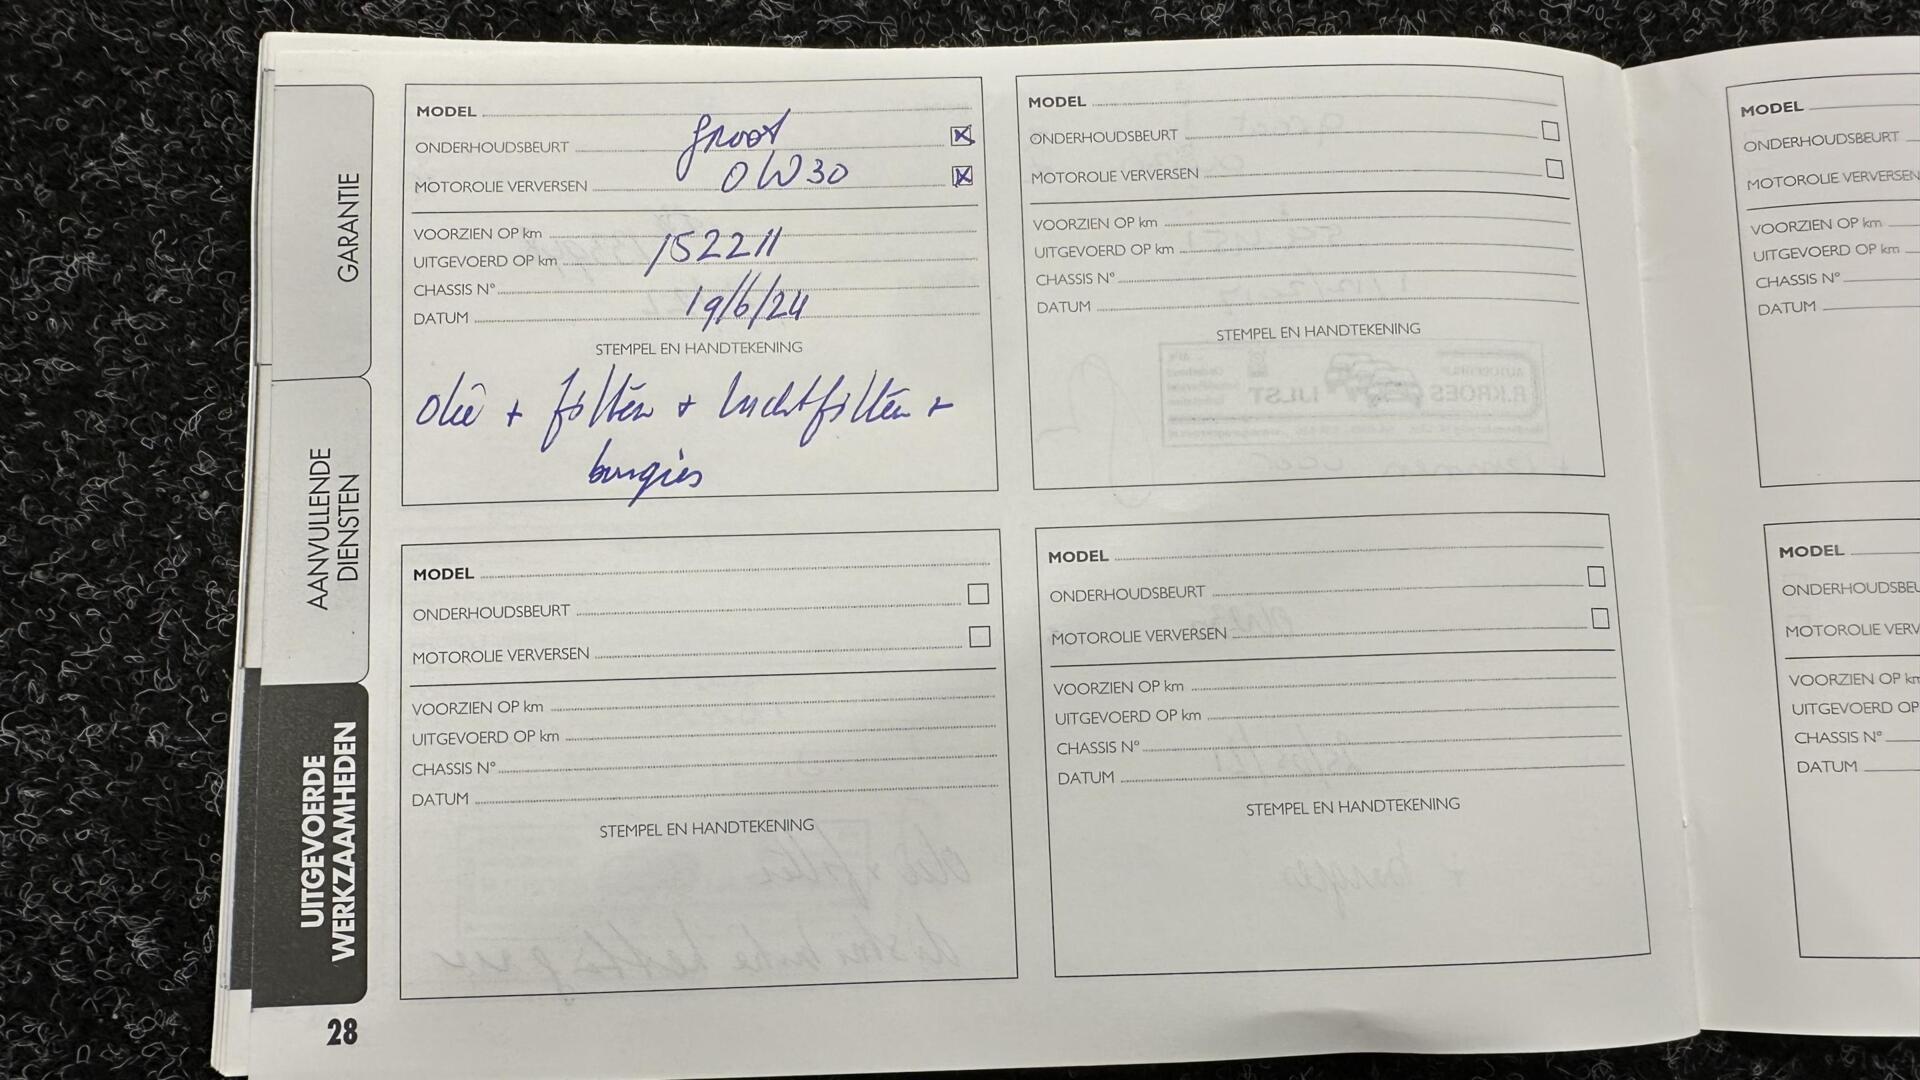 GARANTIE
AANVULLENDE
DIENSTEN
UITGEVOERDE
WERKZAAMHEDEN
28
MODEL
ONDERHOUDSBEURT groot
MOTOROLIE VERVERSEN 0W30
VOORZIEN OP km
UITGEVOERD OP km 152211
CHASSIS N°
DATUM 19/6/24
STEMPEL EN HANDTEKENING
olie + filter + luchtfilter +
bougies
MODEL
ONDERHOUDSBEURT
MOTOROLIE VERVERSEN
VOORZIEN OP km
UITGEVOERD OP km
CHASSIS N°
DATUM
STEMPEL EN HANDTEKENING
MODEL
ONDERHOUDSBEURT
MOTOROLIE VERVERSEN
VOORZIEN OP km
UITGEVOERD OP km
CHASSIS N°
DATUM
STEMPEL EN HANDTEKENING
MODEL
ONDERHOUDSBEURT
MOTOROLIE VERVERSEN
VOORZIEN OP km
UITGEVOERD OP km
CHASSIS N°
DATUM
STEMPEL EN HANDTEKENING
MODEL
ONDERHOUDSBEURT
MOTOROLIE VERVERSEN
VOORZIEN OP km
UITGEVOERD OP km
CHASSIS N°
DATUM
MODEL
ONDERHOUDSBEU
MOTOROLIE VERV
VOORZIEN OP km
UITGEVOERD OP
CHASSIS N°
DATUM